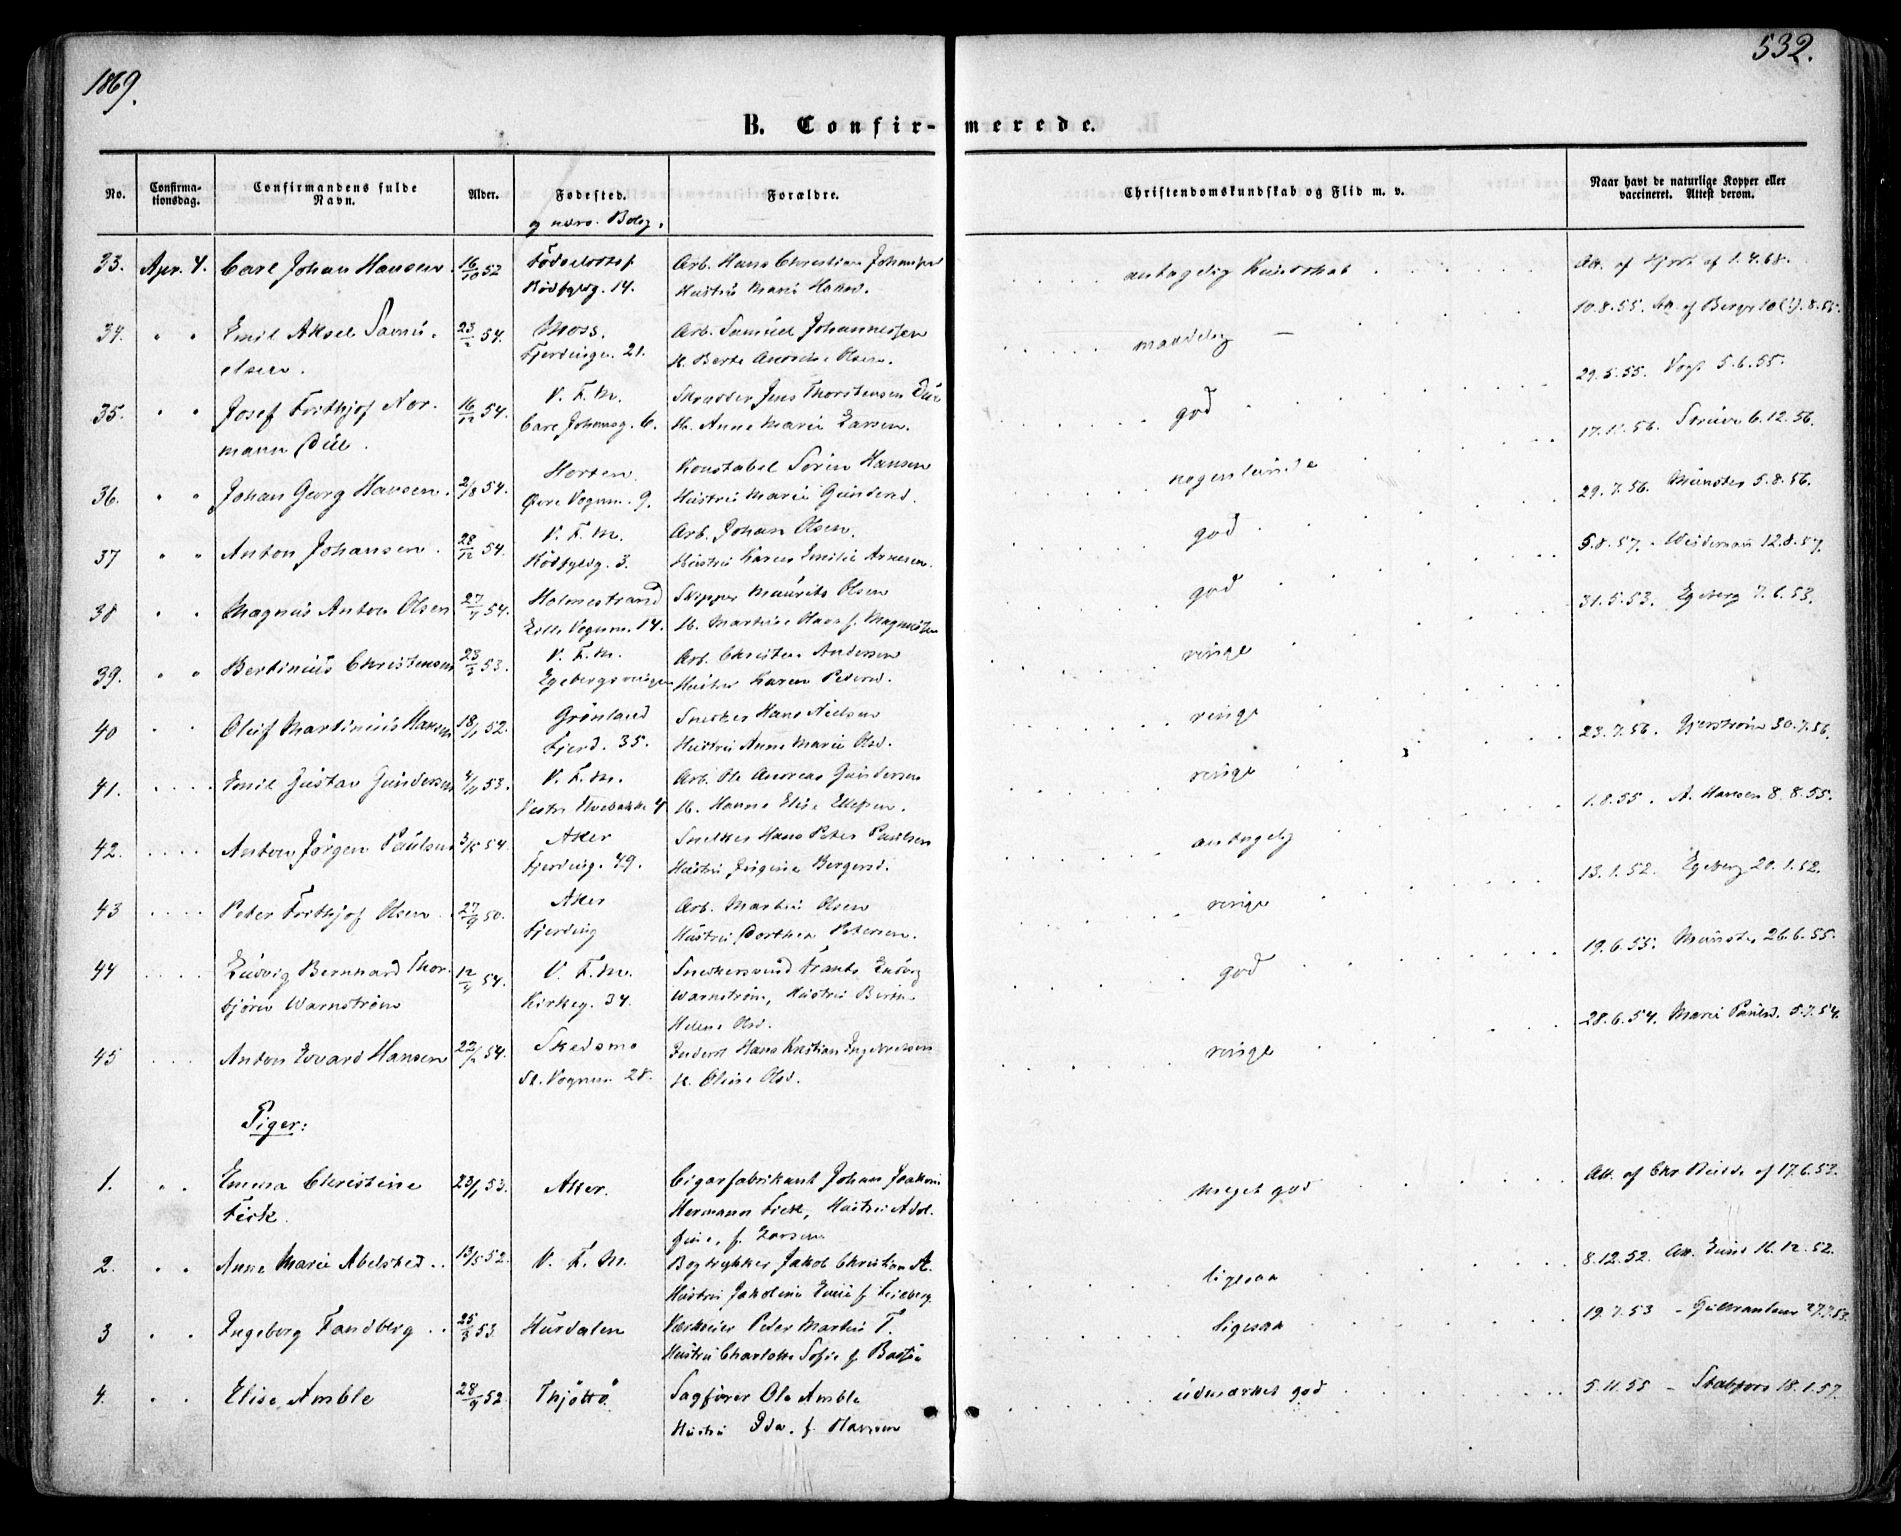 1869.
532.
B. Confir-merede.
No.
Confirma-
tionsdag.
Confirmandens fulde
Navn.
Alder.
Fødested.
Forældre.
Christendomskundskab og Flid m. v.
Naar havt de naturlige Kopper eller
vaccineret. Attest derom.
33. Apr. 4. Carl Johan Hansen. 16/10 52
14. Hustru Marie
Arb. Hans Christian
antagelig Kundskab
Att. af Hjort af 1.4.68.
34. " " Emil Aksel Samu-
elsen.
23/2 54. Moss.
21.
Arb. Samuel Johannessen
H. Berte Olsen.
maadelig —
10.8.55.
35. " " Josef Frithjof Nor-
mann
16/12 54. V. F. M.
Carl Johansg. 6.
Skrædder Jens Thorstensen
H. Anne Marie Larsen.
god
29.5.55. Vogt 5.6.55.
36. " " Johan Georg Hansen. 2/8 54. Horten
Øvre Vognm. 9.
Konstabel Sørin Hansen
Hustru Marie Gundersd.
nogenlunde
6.12.56.
37 " " Anton Johansen. 28/12 54. V. F. M.
3.
Arb. Johan Olsen.
Hustru Karen Emilie Arnesen.
god
29.7.56. Münster 5.8.56.
38 " " Magnus Anton Olsen 27/4 54. Holmestrand
Lille Vognm. 14.
Skipper Maurits Olsen
god
5.8.57. 12.8.57.
39. " " Bertinius Christensen 23/3 53. V. F. M.
Arb. Christen Andersen
Hustru Karen Pedersd.
ringe
31.5.53. Egeberg 7.6.53.
40 " Oluf Martinius Hansen 18/11 52. Grønland
Fjerd. 35.
Snekker Hans Nielsen
Hustru Anne Marie Olsd.
ringe
41. Emil Gustav Gundersen 4/11 53. V. F. M.
4
Arb. Ole Andreas Gundersen
H. Hanne Elise Ellefsen.
ringe
23.7.56. 30.7.56.
42. Anton Jørgen Paulsen 3/5 54. Aker
Fjerding. 49.
Snekker Hans Peter Paulsen
Hustru Jørgine Bergersd.
antagelig
1.8.55. A. Hansen 8.8.55.
43 Peter Frithjof Olsen 27/9 50. Aker
Fjerding
Arb. Martin Olsen
Hustru Dorthea Petersen.
ringe
13.1.52. Egeberg 20.1.52.
44 Ludvig Bernhard Thor-
bjørn Warnstrøm
12/4 54. V. F. M.
Kirkeg. 34.
Snekkersvend Frants Ludvig
Warnstrøm, Hustru
Helene Olsd.
god
19.6.55. Münster 26.6.55.
45 Anton Edvard Hansen 22/2 54. Skedsmo
St. Vognm. 28.
Inderst Hans Kristian Ingebretsen
H. Oline Olsd.
ringe
28.6.54. Marie Paulsd. 5.7.54.
Piger:
1. " " Emma Christine
Fick.
23/1 53. Aker.
Cigarfabrikant Johan Joakim
Hermann Fick, Hustru Adol-
fine, f. Larsen
meget god
2. " " Anne Marie Abelsted 13/5 52. V. F. M.
Bogtrykker Jakob Christian A.
ligesaa
8.12.52. Att. 16.12.52.
3 " " Ingeborg Fandberg 25/3 53. Hurdalen
Peter Martin F.
Hustru Charlotte Sofie f.
ligesaa
19.7.53
4. " " Elise Amble 28/9 52. Thjøttø
Sagfører Ole Amble
Hustru Ida. f. Hansen
udmærket god
5.11.55 18.1.57.